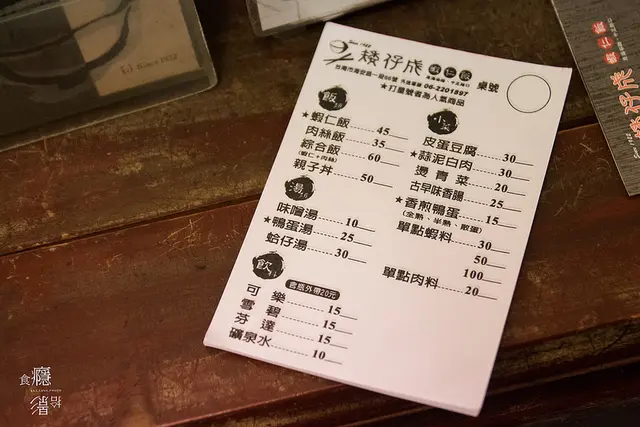 Since 1922
矮仔成 蝦仁飯 桌號
台南市海安路一段66號 先施藥廠 06-2201897
★打星號者為人氣商品
飯
★蝦仁飯 45
肉絲飯 35
綜合飯 60
(蝦仁+肉絲)
親子丼 50
湯
味噌湯 10
★鴨蛋湯 25
蛤仔湯 30
飲
盒瓶外帶20元
可樂 15
雪碧 15
芬達 15
礦泉水 10
小菜
皮蛋豆腐 30
★蒜泥白肉 30
燙青菜 20
古早味香腸 25
★香煎鴨蛋 15
(全熟、半熟、散蛋)
單點蝦料 30
50
100
單點肉料 20
Since 1922
蝦仁飯
矮仔成
食癮
拾影